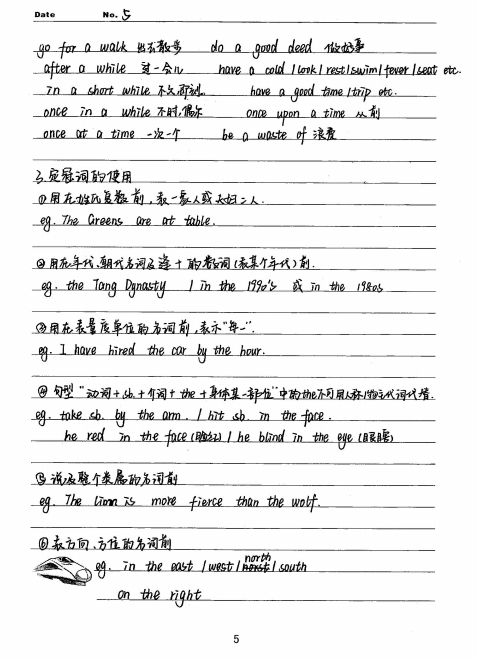 Date No. 5
go for a walk 出去散步 do a good deed 做好事
after a while 过一会儿 have a cold / look / rest / swim / fever / seat etc.
in a short while 不久 have a good time / trip etc.
once in a while 不时,偶尔 once upon a time 从前
once at a time 一次一个 be a waste of 浪费
3. 定冠词的使用
①用在姓氏复数前,表一家人或夫妇二人.
eg. The Greens are at table.
②用在年代、朝代名词及逢十的数词(表某个年代)前.
eg. the Tang Dynasty / in the 1990's 或 in the 1980s
③用在表量度单位的名词前,表示"每一".
eg. I have hired the car by the hour.
④句型"动词+sb.+介词+the+身体某一部位"中的the不可用人称/物主代词代替.
eg. take sb. by the arm. / hit sb. in the face.
he red in the face (脸红) / he blind in the eye (眼瞎)
⑤说及整个类属的名词前
eg. The lion is more fierce than the wolf.
⑥表方向、方位的名词前
eg. in the east / west / north / south
on the right
5